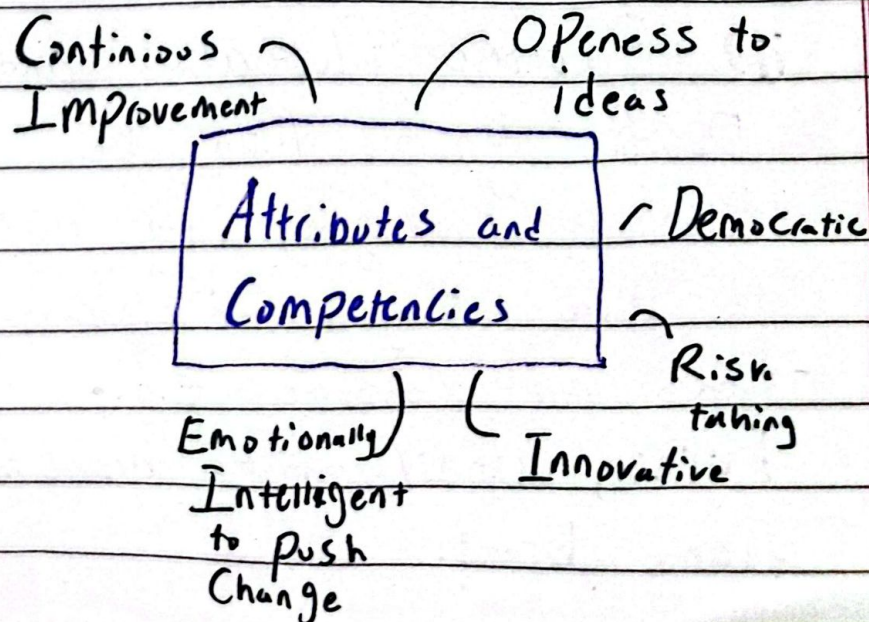 Continious
Improvement
Openess to
ideas
Attributes and
Competencies
Democratic
Risk
taking
Emotionally
Intelligent
to push
Change
Innovative